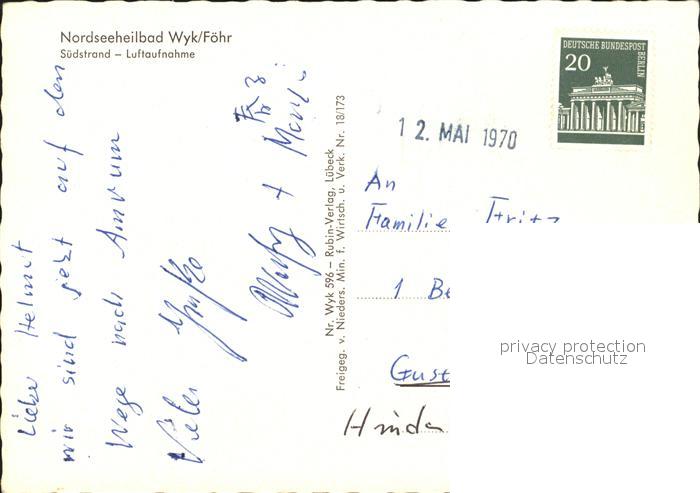 Nordseeheilbad Wyk/Föhr
Südstrand – Luftaufnahme
Lieber Helmut
wir sind jetzt auf den
Wege nach Amrum
Viele Grüße
+
Nr. Wyk 596 – Rubin-Verlag, Lübeck
Freigeg. v. Nieders. Min. f. Wirtsch. u. Verk. Nr. 18/173
DEUTSCHE BUNDESPOST
BERLIN
20
12. MAI 1970
An
Familie Fritz
1 Be
Gust
privacy protection
Datenschutz